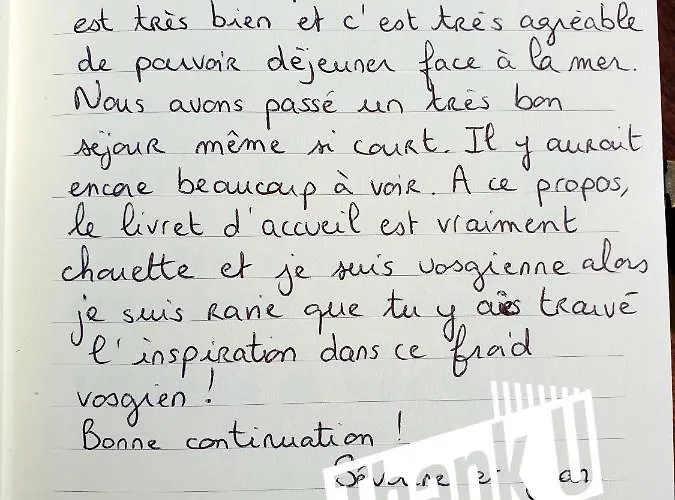 est très bien et c'est très agréable
de pouvoir déjeuner face à la mer.
Nous avons passé un très bon
séjour même si court. Il y aurait
encore beaucoup à voir. A ce propos,
le livret d'accueil est vraiment
chouette et je suis vosgienne alors
je suis ravie que tu y aies trouvé
l'inspiration dans ce froid
vosgien !
Bonne continuation !
Thank U